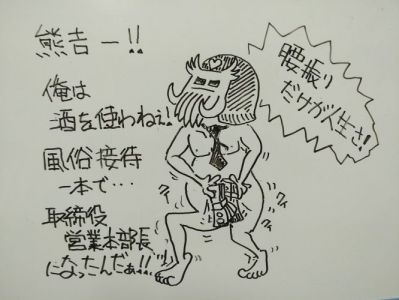 熊吉ー!!
俺は
酒を使わねぇ!
風俗接待
一本で…
取締役
営業本部長
になったんだぁ!!
腰振り
だけが人生さ!
クイ
クイ
クイ
クイ